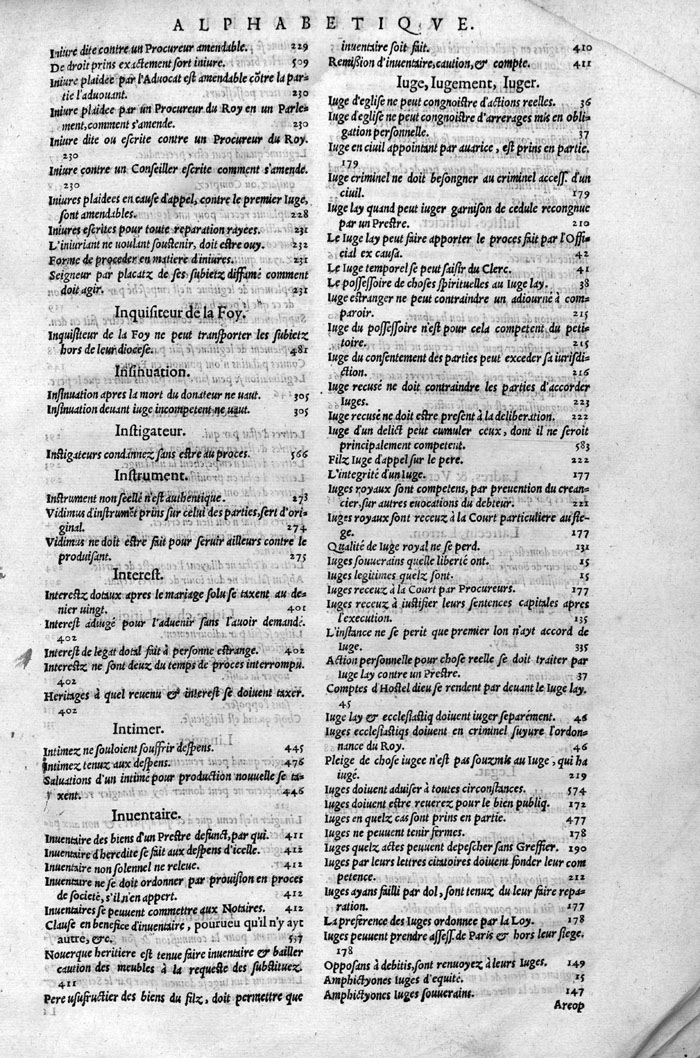 ALPHABETIQVE.
Iniure dite contre un Procureur amendable. 229
De droit prins exactement sort iniure. 509
Iniure plaidee par l'Aduocat est amendable cõtre la par=
tie l'aduouant. 230
Iniure plaidee par un Procureur du Roy en un Parle=
ment, comment s'amende. 230
Iniure dite ou escrite contre un Procureur du Roy.
230
Iniure contre un Conseiller escrite comment s'amende.
230
Iniures plaidees en cause d'appel, contre le premier Iuge,
sont amendables. 228
Iniures escrites pour toute reparation rayees. 231
L'iniuriant ne uoulant soustenir, doit estre ouy. 232
Forme de proceder en matiere d'iniures. 231
Seigneur par placatz de ses subietz diffamé comment
doit agir. 231
Inquisiteur de la Foy.
Inquisiteur de la Foy ne peut transporter les subietz
hors de leur diocese. 481
Insinuation.
Insinuation apres la mort du donateur ne uaut. 305
Insinuation deuant iuge incompetent ne uaut. 305
Instigateur.
Instigateurs condãnez sans estre au proces. 566
Instrument.
Instrument non seellé n'est authentique. 273
Vidimus d'instrumẽt prins sur celui des parties, sert d'ori=
ginal. 274
Vidimus ne doit estre fait pour seruir ailleurs contre le
produisant. 275
Interest.
Interestz dotaux apres le mariage solu se taxent au de=
nier uingt. 401
Interest adiugé pour l'aduenir sans l'auoir demandé.
402
Interest de legat dotal fait à personne estrange. 402
Interestz ne sont deuz du temps de proces interrompu.
402
Heritages à quel reuenu & interest se doiuent taxer.
402
Intimer.
Intimez ne souloient souffrir despens. 445
Intimez tenuz aux despens. 476
Saluations d'un intimé pour production nouuelle se ta=
xent. 446
Inuentaire.
Inuentaire des biens d'un Prestre defunct, par qui. 411
Inuentaire d'heredite se fait aux despens d'icelle. 412
Inuentaire non solennel ne releue. 412
Inuentaire ne se doit ordonner par prouision en proces
de societè, s'il n'en appert. 412
Inuentaires se peuuent commettre aux Notaires. 412
Clause en benefice d'inuentaire, pourueu qu'il n'y ayt
autre, &c. 537
Nouerque heritiere est tenue faire inuentaire & bailler
caution des meubles à la requeste des substituez.
411
Pere usufructier des biens du filz, doit permettre que
inuentaire soit fait. 410
Remission d'inuentaire, caution, & compte. 411
Iuge, Iugement, Iuger.
Iuge d'eglise ne peut congnoistre d'actions reelles. 36
Iuge d'eglise ne peut congnoistre d'arrerages mis en obli=
gation personnelle. 37
Iuge en ciuil appointant par auarice, est prins en partie.
179
Iuge criminel ne doit besongner au criminel access. d'un
ciuil. 179
Iuge lay quand peut iuger garnison de cedule recongnue
par un Prestre. 210
Le Iuge lay peut faire apporter le proces fait par l'Offi=
cial ex causa. 42
Le Iuge temporel se peut saisir du Clerc. 41
Le possessoire de choses spirituelles au Iuge lay. 38
Iuge estranger ne peut contraindre un adiourné à com=
paroir. 215
Iuge du possessoire n'est pour cela competent du peti=
toire. 215
Iuge du consentement des parties peut exceder sa iurisdi=
ction. 216
Iuge recusé ne doit contraindre les parties d'accorder
Iuges. 223
Iuge recusé ne doit estre present à la deliberation. 222
Iuge d'un delict peut cumuler ceux, dont il ne seroit
principalement competent. 583
Filz Iuge d'appel sur le pere. 222
L'integrité d'un Iuge. 177
Iuges royaux sont competens, par preuention du crean=
cier, sur autres euocations du debteur. 221
Iuges royaux sont receuz à la Court particuliere au sie=
ge. 177
Qualité de Iuge royal ne se perd. 131
Iuges souuerains quelle liberté ont. 15
Iuges legitimes quelz sont. 15
Iuges receuz à la Court par Procureurs. 177
Iuges receuz à iustifier leurs sentences capitales apres
l'execution. 135
L'instance ne se perit que premier lon n'ayt accord de
Iuge. 335
Action personnelle pour chose reelle se doit traiter par
Iuge lay contre un Prestre. 37
Comptes d'Hostel dieu se rendent par deuant le Iuge lay.
45
Iuge lay & ecclesiastiq doiuent iuger separément. 46
Iuges ecclesiastiqs doiuent en criminel suyure l'ordon=
nance du Roy. 46
Pleige de chose iugee n'est pas souzmis au Iuge, qui ha
iugé. 219
Iuges doiuent aduiser à toutes circonstances. 574
Iuges doiuent estre reuerez pour le bien publiq. 172
Iuges en quelz cas sont prins en partie. 477
Iuges ne peuuent tenir fermes. 178
Iuges quelz actes peuuent depescher sans Greffier. 190
Iuges par leurs lettres citatoires doiuent fonder leur com
petence. 212
Iuges ayans failli par dol, sont tenuz du leur faire repa=
ration. 177
La preference des Iuges ordonnee par la Loy. 178
Iuges peuuent prendre assess. de Paris & hors leur siege.
178
Opposans à debitis, sont renuoyez à leurs Iuges. 149
Amphictyones Iuges d'equité. 15
Amphictyones Iuges souuerains. 147
Areop